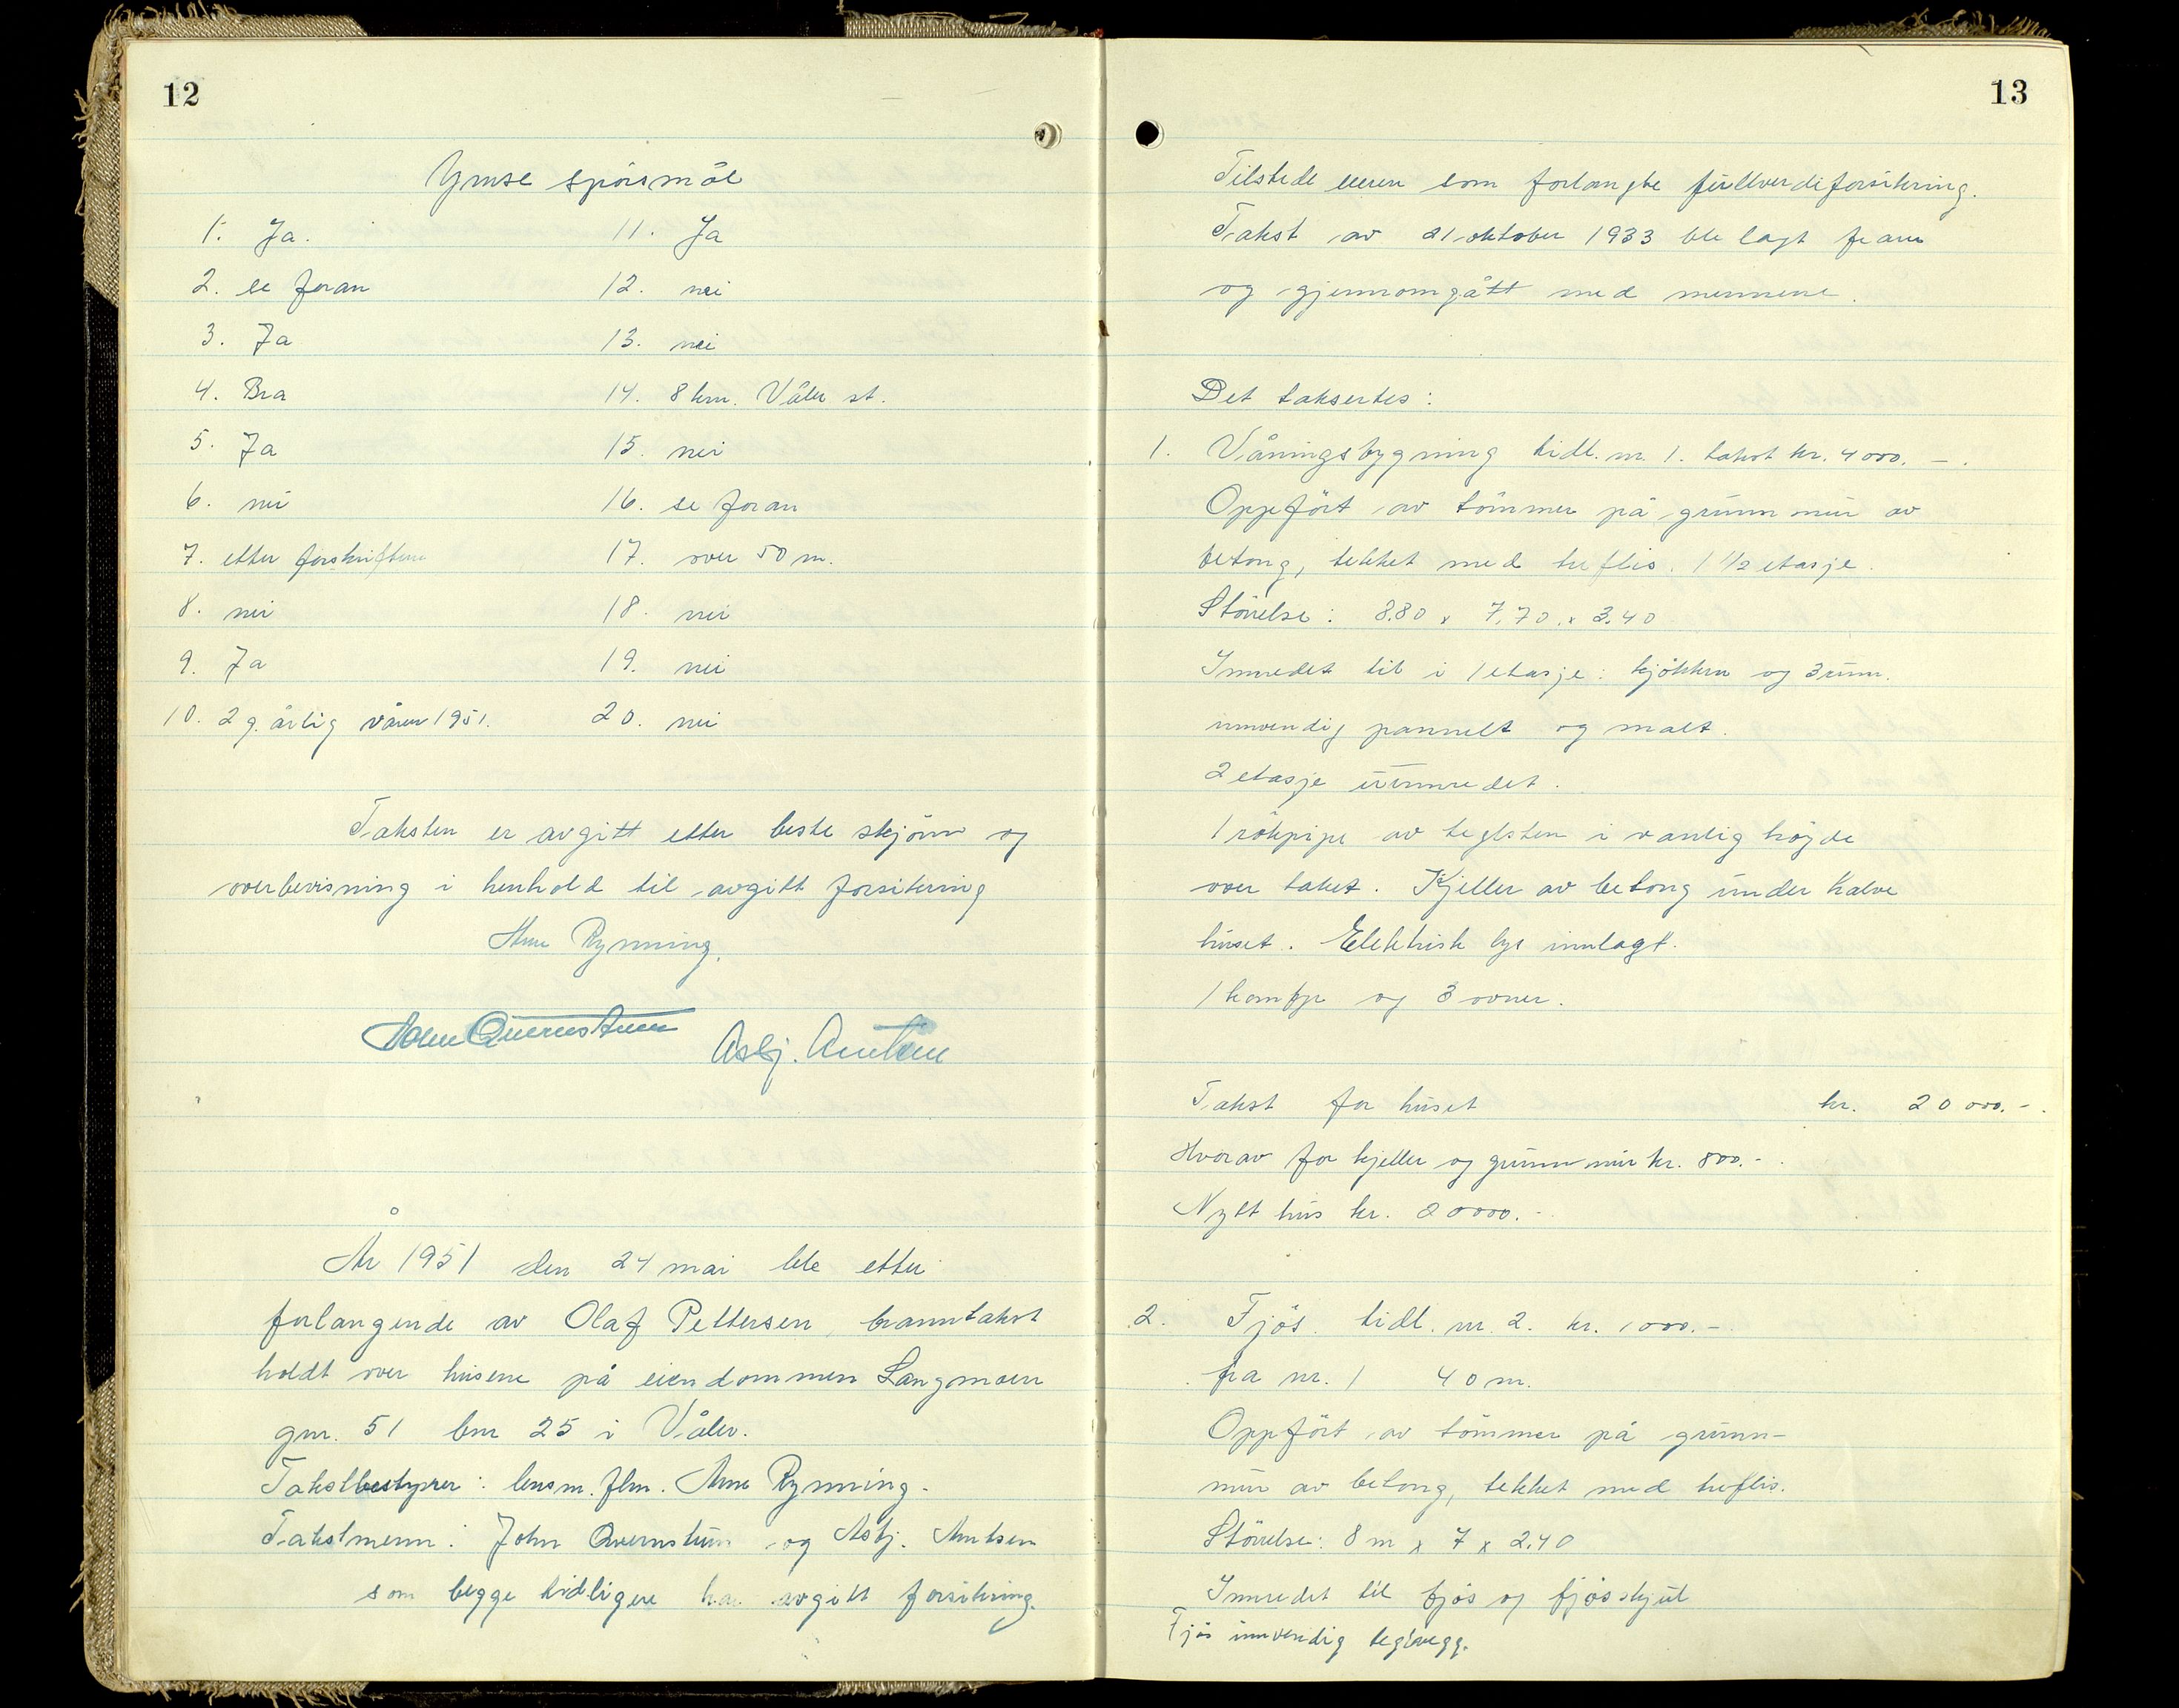 12
Ymse spörsmål
1. Ja.
2. se foran
3. Ja
4. Bra
5. Ja
6. nei
7. etter forskriftene
8. nei
9. Ja
10. 2 g. årlig våren 1951.
11. Ja
12. nei
13. nei
14. 8 km. Våler st.
15. nei
16. se foran
17. over 50 m.
18. nei
19. nei
20. nei
Taksten er avgitt etter beste skjönn og
overbevisning i henhold til avgitt forsikring
Arne Rynning.
John Quernstuen Asbj. Amtsen
År 1951 den 24 mai ble etter
forlangende av Olaf Pettersen, branntakst
holdt over husene på eiendommen Langmoen
gnr. 51 bnr 25 i Våler.
Takstbestyrer: lensm. flm. Arne Rynning.
Takstmenn: John Qvernstuen og Asbj.
som begge tidligere har avgitt forsikring.
13
Tilstede eieren som forlangte fullverdiforsikring.
Takst av 21 oktober 1933 ble lagt fram
og gjennomgått med mennene.
Det taksertes:
1. Våningsbygning tidl. nr. 1. takst kr. 4000.-.
Oppfört av tömmer på grunnmur av
betong, tekket med treflis. 1 1/2 etasje.
Störrelse: 8.80 x 7.70 x 3.40
Innredet til i 1 etasje: kjökken og 3 rum.
innvendig pannelt og malt.
2 etasje uinnredet.
1 rökpipe av teglsten i vanlig höyde
over taket. Kjeller av betong under halve
huset. Elektrisk lys innlagt.
1 komfyr og 3 ovner.
Takst for huset kr. 20 000.-.
Hvorav for kjeller og grunnmur kr. 800.-.
Nytt hus kr. 20000.-
2. Fjös. tidl. nr. 2. kr. 1000.-
fra nr. 1 40 m.
Oppfört av tömmer på grunn-
mur av betong, tekket med treflis.
Störrelse: 8 m x 7 x 2.40
Innredet til fjös og fjösskjul
Fjös innvendig teglvegg.